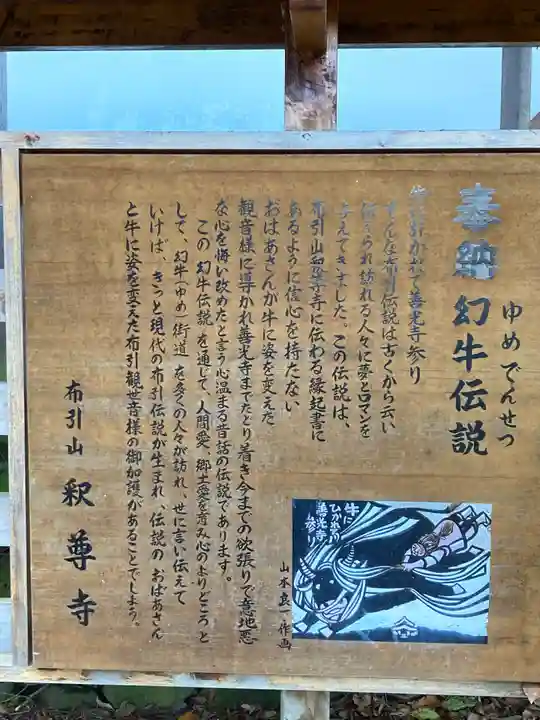 奉納 幻牛伝説
ゆめ でんせつ
牛に引かれて善光寺参り
そんな布引伝説は古くから云い
伝えられ訪れる人々に夢とロマンを
与えてきました。この伝説は、
布引山釈尊寺に伝わる縁起書に
あるように信心を持たない
おばあさんが牛に姿を変えた
観音様に導かれ善光寺までたどり着き、今までの欲張りで意地悪
な心を悔い改めたと言う心温まる昔話の伝説であります。
この幻牛伝説を通じて、人間愛、郷土愛を育み心のよりどころと
して、幻牛(ゆめ)街道を多くの人々が訪れ、世に言い伝えて
いけば、きっと現代の布引伝説が生まれ、伝説のおばあさん
と牛に姿を変えた布引観世音様の御加護があることでしょう。
布引山 釈尊寺
牛に
ひかれて
善光寺
参り
山本良一作画